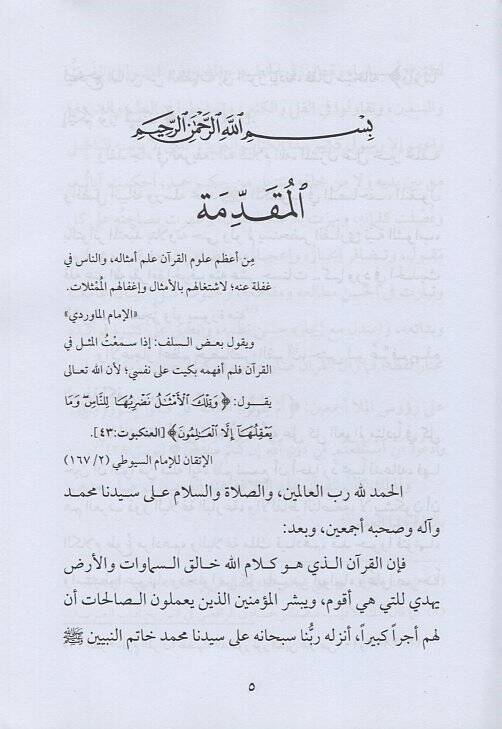 بِسْمِ اللَّهِ الرَّحْمَٰنِ الرَّحِيمِ
المُقَدِّمَة
مِن أعظم علوم القرآن علم أمثاله، والناس في
غفلة عنه؛ لاشتغالهم بالأمثال وإغفالهم المُمْثلات.
«الإمام الماوردي»
ويقول بعض السلف: إذا سمعْتُ المثل في
القرآن فلم أفهمه بكيت على نفسي؛ لأن الله تعالى
يقول: ﴿وَتِلْكَ الْأَمْثَالُ نَضْرِبُهَا لِلنَّاسِ وَمَا
يَعْقِلُهَا إِلَّا الْعَالِمُونَ﴾ [العنكبوت: ٤٣].
الإتقان للإمام السيوطي (٢/ ١٦٧)
الحمد لله رب العالمين، والصلاة والسلام على سيدنا محمد
وآله وصحبه أجمعين، وبعد:
فإن القرآن الذي هو كلام الله خالق السماوات والأرض
يهدي للتي هي أقوم، ويبشر المؤمنين الذين يعملون الصالحات أن
لهم أجراً كبيراً، أنزله ربُّنا سبحانه على سيدنا محمد خاتم النبيين ﷺ
٥